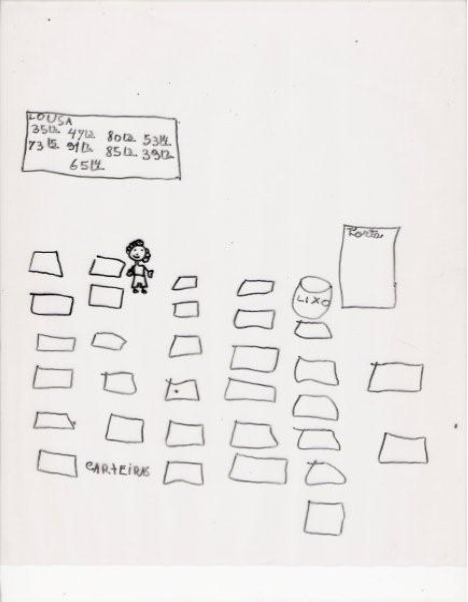 LOUSA
35|2 47|2 80|2 53|4
73|5 91|2 85|2 39|2
65|4
Porta
LIXO
CARTEIRAS